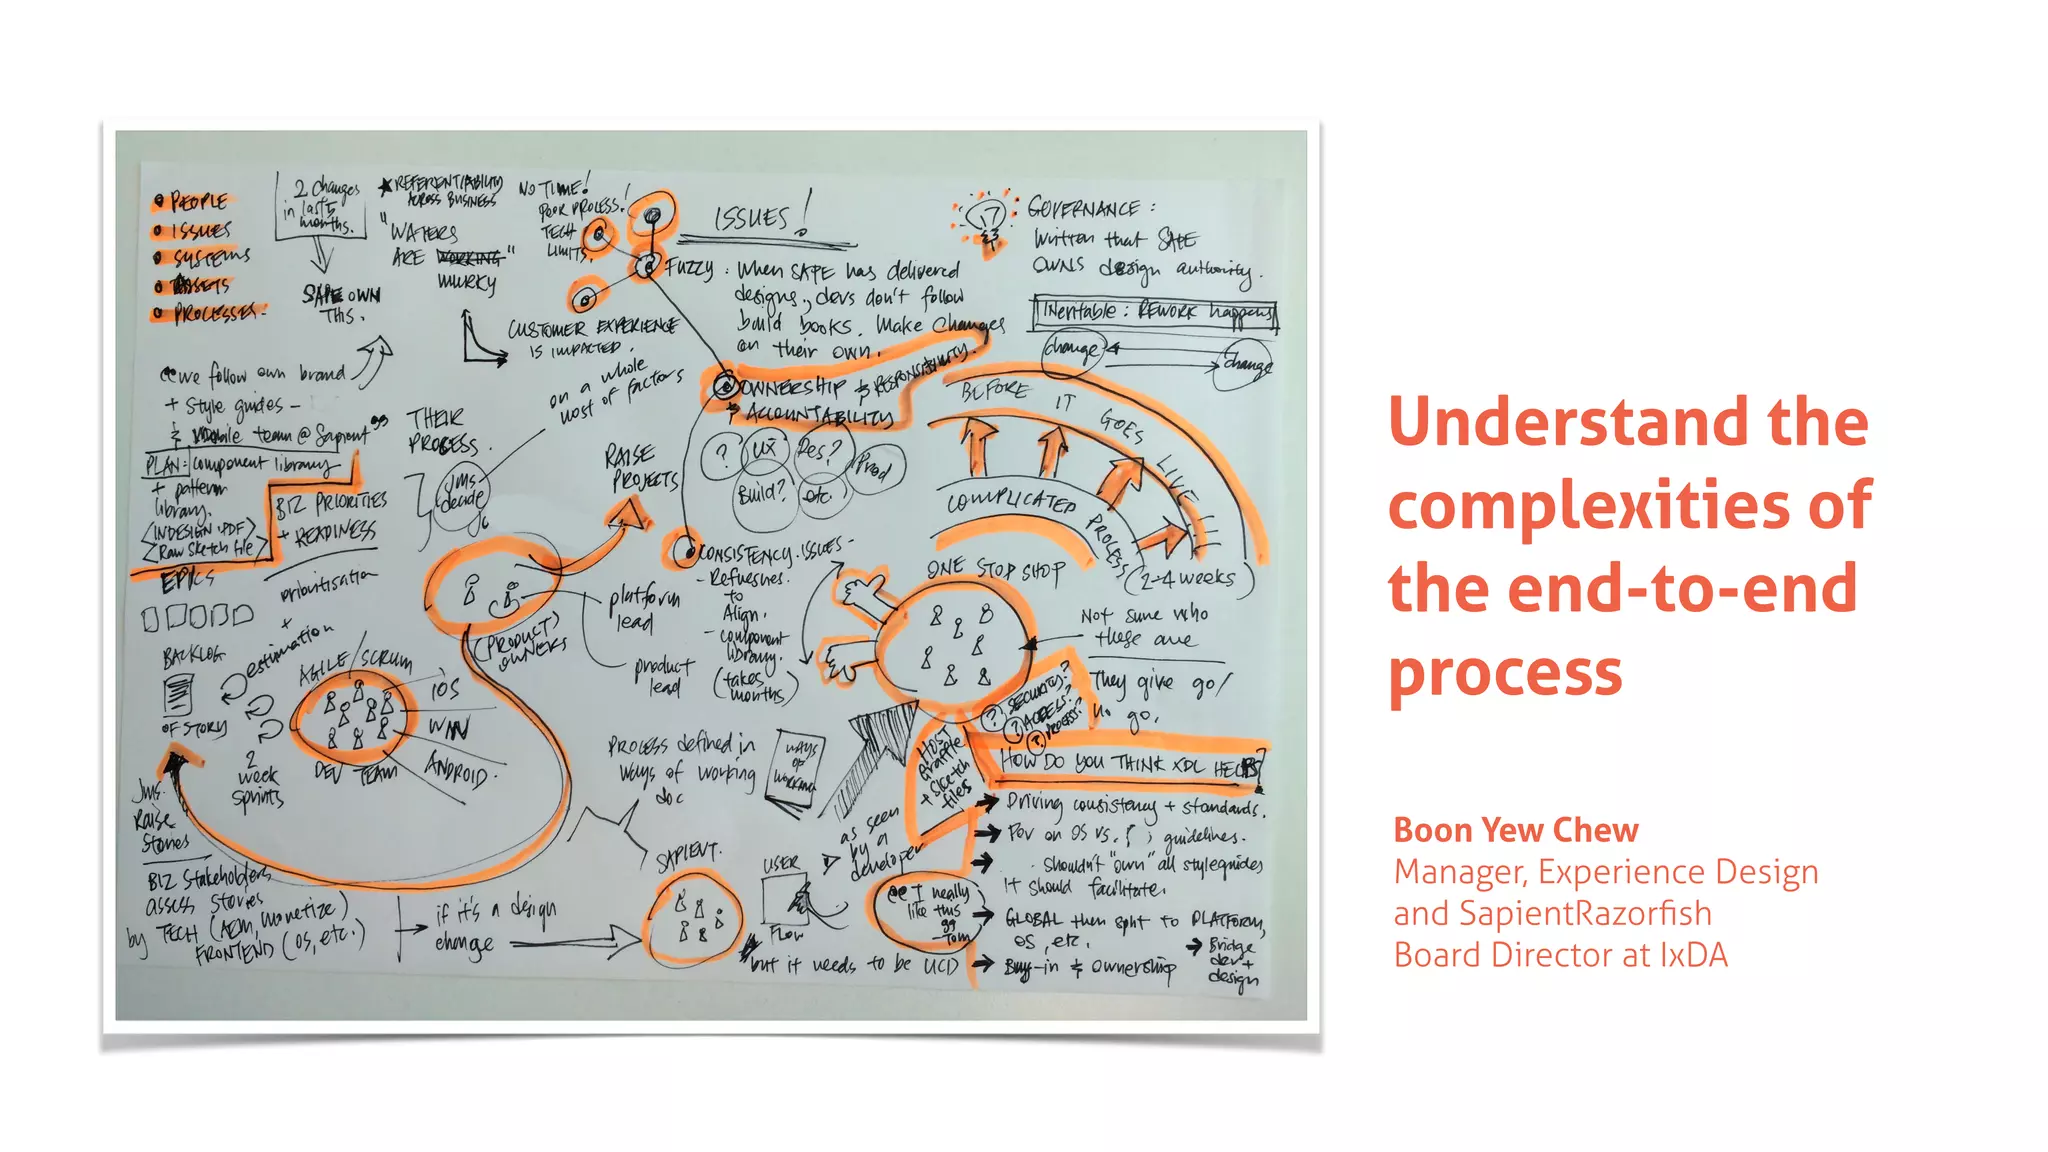 PEOPLE
ISSUES
SYSTEMS
ASSETS
PROCESSES.
2 changes
in last 5
months.
OWN
THIS.
★ REFERENTIABILITY
ACROSS BUSINESS
"WATERS
ARE WORKING"
MURKY
NO TIME!
POOR PROCESS!
TECH
LIMITS.
CUSTOMER EXPERIENCE
IS IMPACTED.
ISSUES!
FUZZY: When SAPE has delivered
designs, devs don't follow
build books. Make changes
on their own.
GOVERNANCE:
Written that SAPE
OWNS design authority.
Inevitable: REWORK happens
change
change
"we follow own brand
+ style guides -
& Mobile team @ Sapient"
PLAN: component library
+ pattern
library.
<INDESIGN.PDF>
<Raw Sketch file>
BIZ PRIORITIES
+ READINESS
prioritisation
+
estimation
THEIR
PROCESS.
JMs
decide
on a whole
host of factors
RAISE
PROJECTS
OWNERSHIP & RESPONSIBILITY.
& ACCOUNTABILITY
?
UX
Des?
Prod
Build?
etc.
BEFORE IT GOES LIVE!!!
COMPLICATED PROCESS
(2-4 weeks)
ONE STOP SHOP
CONSISTENCY ISSUES -
- Refreshes.
to
Align.
- component
library.
(takes
months)
EPICS
BACKLOG
OF STORY
AGILE/SCRUM
DEV TEAM
iOS
WIN
ANDROID.
2
week
sprints
(PRODUCT)
OWNERS
platform
lead
product
lead
Not sure who
these are
They give go/
no go.
? SECURITY?
? ACCESS?
? PROCESS?
HOST
Graffle
+ sketch
files
HOW DO YOU THINK XDL HELPS?
→ Driving consistency + standards.
→ POV on OS vs. { } guidelines.
→ . Shouldn't "own" all styleguides
It should facilitate.
→ GLOBAL then split to PLATFORM,
OS, etc.
→ Bridge
dev +
design
→ Buy-in & ownership
"I really
like this"
- Tom
PROCESS defined in
Ways of working
doc
WAYS
OF
WORKING
as seen
by a
developer
JMs.
Raise
Stories
BIZ Stakeholders
assess stories
by TECH (ADM, monetize)
FRONTEND (OS, etc.)
if it's a design
change
SAPIENT.
USER
FLOW
but it needs to be UCD
Understand the
complexities of
the end-to-end
process
Boon Yew Chew
Manager, Experience Design
and SapientRazorfish
Board Director at IxDA